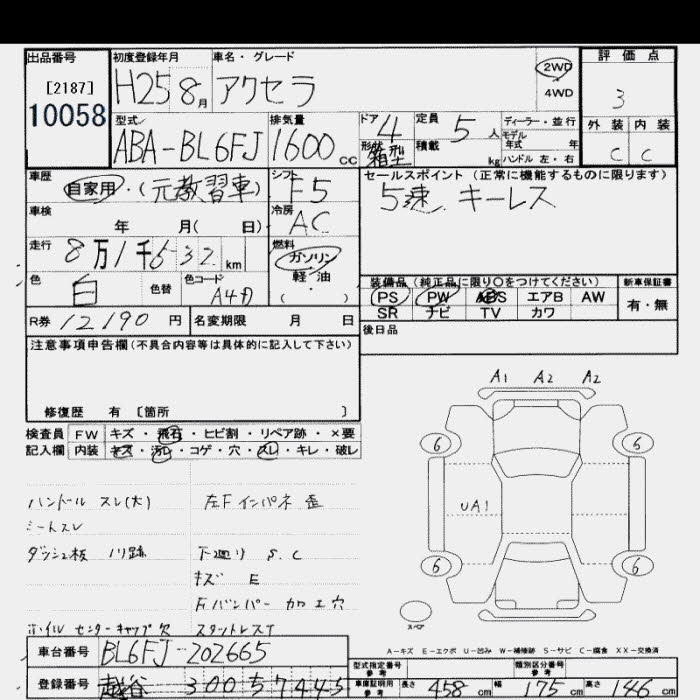 出品番号 初度登録年月 車名・グレード 評価点
[2187] H25 8月 アクセラ 2WD 3
10058 4WD
型式 排気量 ドア 定員 ディーラー・並行 外装 内装
ABA-BL6FJ 1600cc 4 5人 モデル年式 年 C C
形状 箱型 積載 kg ハンドル 左・右
車歴 シフト セールスポイント (正常に機能するものに限ります)
自家用・(元教習車) F5 5速 キーレス
車検 年 月( 日) 冷房 AC
走行 8万1千 km 燃料 ガソリン
軽・油
( )
色 白 色替 色コード A4D
装備品 (純正品に限り〇をつけてください) 新車保証書
PS PW ABS エアB AW 有・無
SR ナビ TV カワ
R券 12190円 名変期限 月 日
後日品
注意事項申告欄(不具合内容等は具体的に記入して下さい)
修復歴 有 [箇所 ]
検査員 FW キズ・飛石・ヒビ割・リペア跡・×要
記入欄 内装 キズ・汚レ・コゲ・穴・スレ・キレ・破レ
A1 A2 A2
6 5
UA1
6 6
スペア
ハンドル スレ(大) 左Fインパネ 歪
シートスレ
ダッシュ板 ノリ跡 下廻り S.C
キズ E
Fバンパー カロエ穴
ホイルセンターキャップ欠 スタットレスT
A-キズ E-エクボ U-凹み W-補修跡 S-サビ C-腐食 XX-交換済
車台番号 BL6FJ-202665
型式指定番号 参考 類別区分番号 参考
登録番号 越谷 300 ち 7445
車庫証明用 参考 長さ 458cm 幅 175cm 高さ 146cm